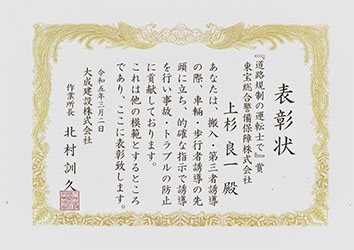 表彰状
『道路規制の運転士で』賞
東宝総合警備保障株式会社
上杉 良一 殿
あなたは、搬入・第三者誘導
の際、車輛・歩行者誘導の先
頭に立ち、的確な指示で誘導
を行い事故・トラブルの防止
に貢献しております。
これは他の模範とするところ
であり、ここに表彰致します。
令和五年三月二日
大成建設株式会社
作業所長 北村 訓久